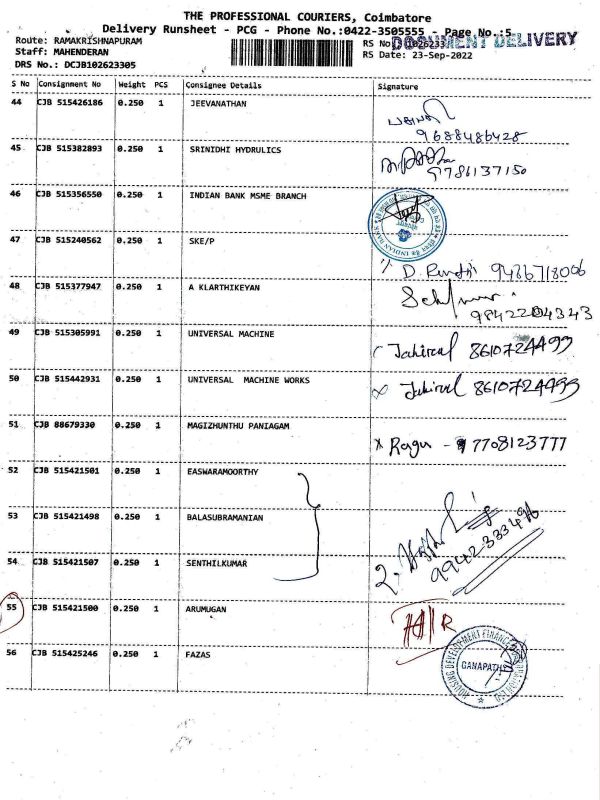 THE PROFESSIONAL COURIERS, Coimbatore
Delivery Runsheet - PCG - Phone No.:0422-3505555 - Page No.:5
Route: RAMAKRISHNAPURAM
RS No
DOCUMENT DELIVERY
Staff: MAHENDERAN
RS Date: 23-Sep-2022
DRS No.: DCJB102623305
S No Consignment No Weight PCS Consignee Details Signature
44 CJB 515426186 0.250 1 JEEVANATHAN
9688486428
45 CJB 515382893 0.250 1 SRINIDHI HYDRULICS
9786137150
46 CJB 515356550 0.250 1 INDIAN BANK MSME BRANCH
INDIAN BANK
47 CJB 515240562 0.250 1 SKE/P
9486718006
48 CJB 515377947 0.250 1 A KLARTHIKEYAN
9842204343
49 CJB 515305991 0.250 1 UNIVERSAL MACHINE
8610724499
50 CJB 515442931 0.250 1 UNIVERSAL MACHINE WORKS
8610724499
51 CJB 88679330 0.250 1 MAGIZHUNTHU PANIAGAM
Ragu - 7708123777
52 CJB 515421501 0.250 1 EASWARAMOORTHY
53 CJB 515421498 0.250 1 BALASUBRAMANIAN
54 CJB 515421507 0.250 1 SENTHILKUMAR
55 CJB 515421500 0.250 1 ARUMUGAN
56 CJB 515425246 0.250 1 FAZAS
HOUSING DEVELOPMENT FINANCE CORPORATION
GANAPATHY